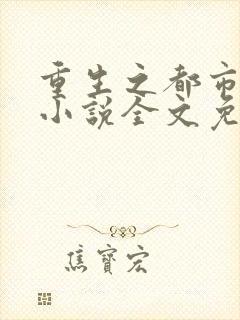 重生之都市
小说全文免
焦寶宏